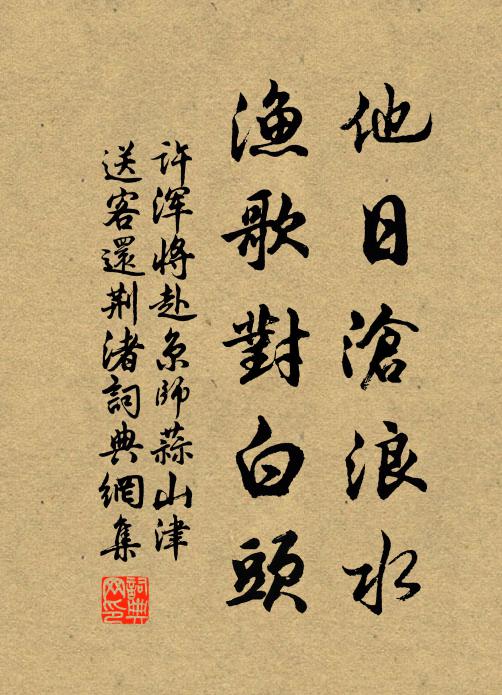 他日滄浪水
漁歌對白頭
許渾將赴京師蒜山津
送客還荆渚詞典網集
詞典网印